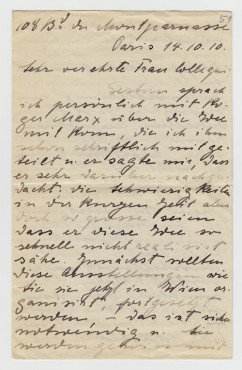 51
108 Bd du Montparnasse
Paris 14.10.10.
Sehr verehrte Frau Collegin
Gestern sprach
ich persönlich mit Ro-
ger Marx über die Idee
mit Rom, die ich ihm
schon schriftlich mit ge-
teilt u. er sagte mir, dass
er sehr darüber nachge-
dacht. die Schwierigkeiten
in der kurzen Zeit aber
doch so grosse seien
dass er diese Idee so
schnell nicht realisirt
sähe. Zunächst sollten
diese Ausstellungen wie
Sie sie jetzt in Wien or-
ganisirt, fortgesetzt
werden – das ist sicher
notwendig u. Sie
werden gewiss mit